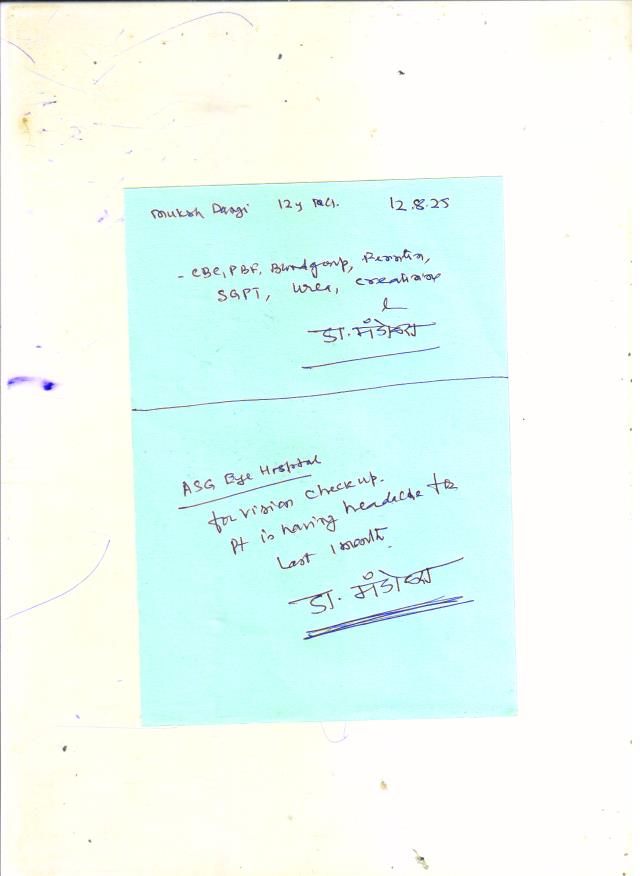 Mukesh Dangi 12y 12.8.25
- CBC, PBF, Blood group, Ferritin,
SGPT, Urea, Creatinine
डा. मंडोव्रा
ASG Eye Hospital
for vision check up.
Pt is having headache for
last 1 month.
डा. मंडोव्रा